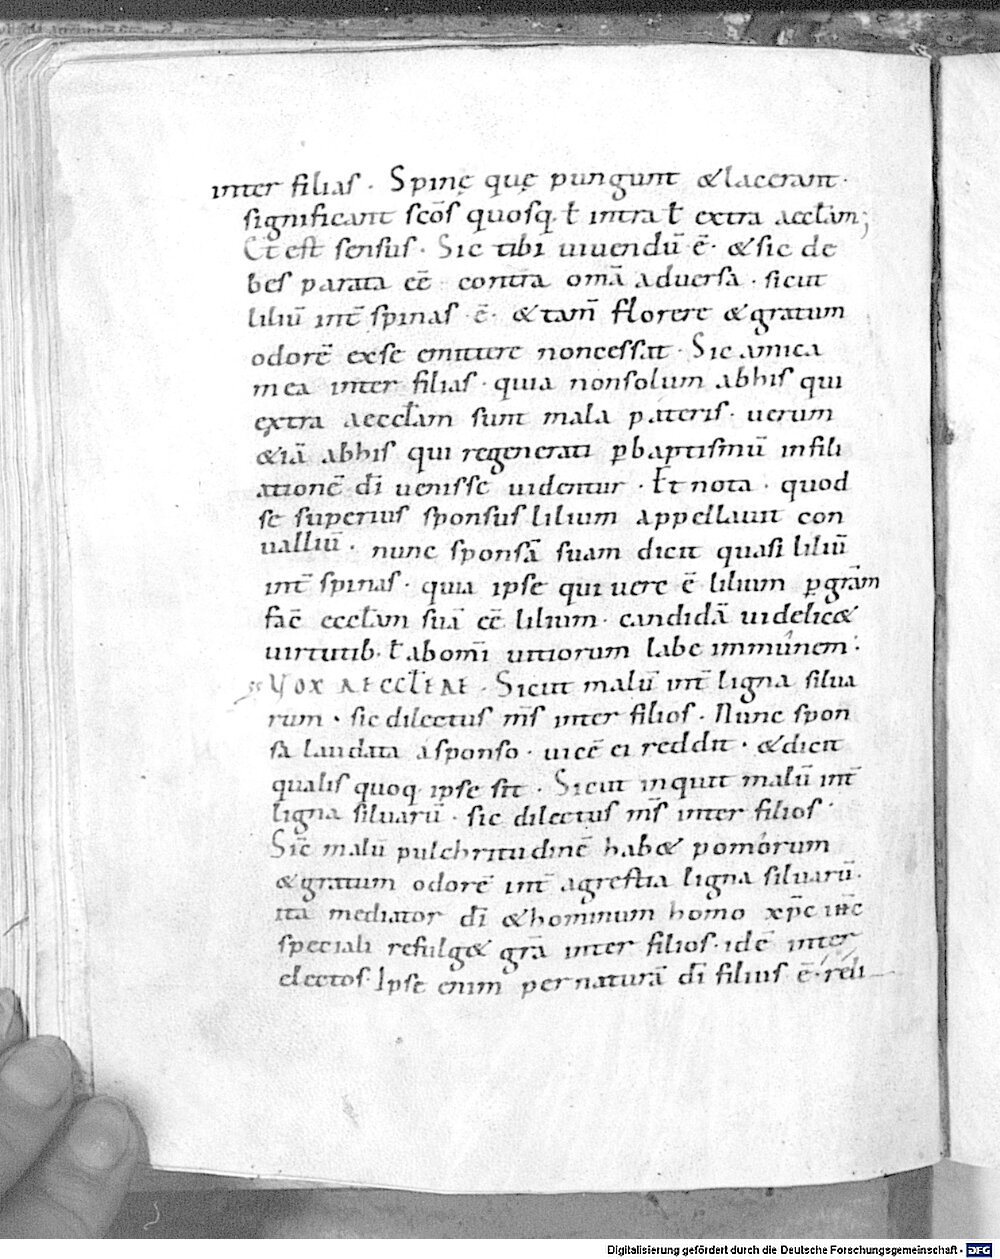 inter filias. Spinę quę pungunt & lacerant.
significant scōs quosq. ł intra ł extra aecclam;
Et est sensus. Sic tibi uiuendū ē. & sic de
bes parata eē contra omā aduersa. sicut
liliū int̄ spinas ē. & tam̄ florere & gratum
odorē ex se emittere non cessat. Sic amica
mea inter filias. quia non solum ab his qui
extra aecclam sunt mala pateris. uerum
&iā ab his qui regenerati ꝑ baptismū in fili
ationē dī uenisse uidentur. Et nota. quod
se superius sponsus lilium appellauit con
ualliū. nunc sponsā suam dicit quasi liliū
int̄ spinas. quia ipse qui uere ē lilium ꝑ grām
fac̄ ecclam suā eē lilium. candidā uidelic&
uirtutib. ł ab om̄i uitiorum labe immunem.
VOX AECCLEAE. Sicut malū int̄ ligna silua
rum. sic dilectus m̄s inter filios. Nunc spon
sa laudata a sponso. uicē ei reddit. & dicit
qualis quoq. ipse sit. Sicut inquit malū int̄
ligna siluarū. sic dilectus m̄s inter filios.
Sic malū pulchritudinē hab& pomorum
& gratum odorē int̄ agrestia ligna siluarū.
ita mediator dī & hominum homo xp̄c ih̄c
speciali refulg& grā inter filios. idē inter
electos. Ipse enim per naturā dī filius ē. reli
Digitalisierung gefördert durch die Deutsche Forschungsgemeinschaft - DFG